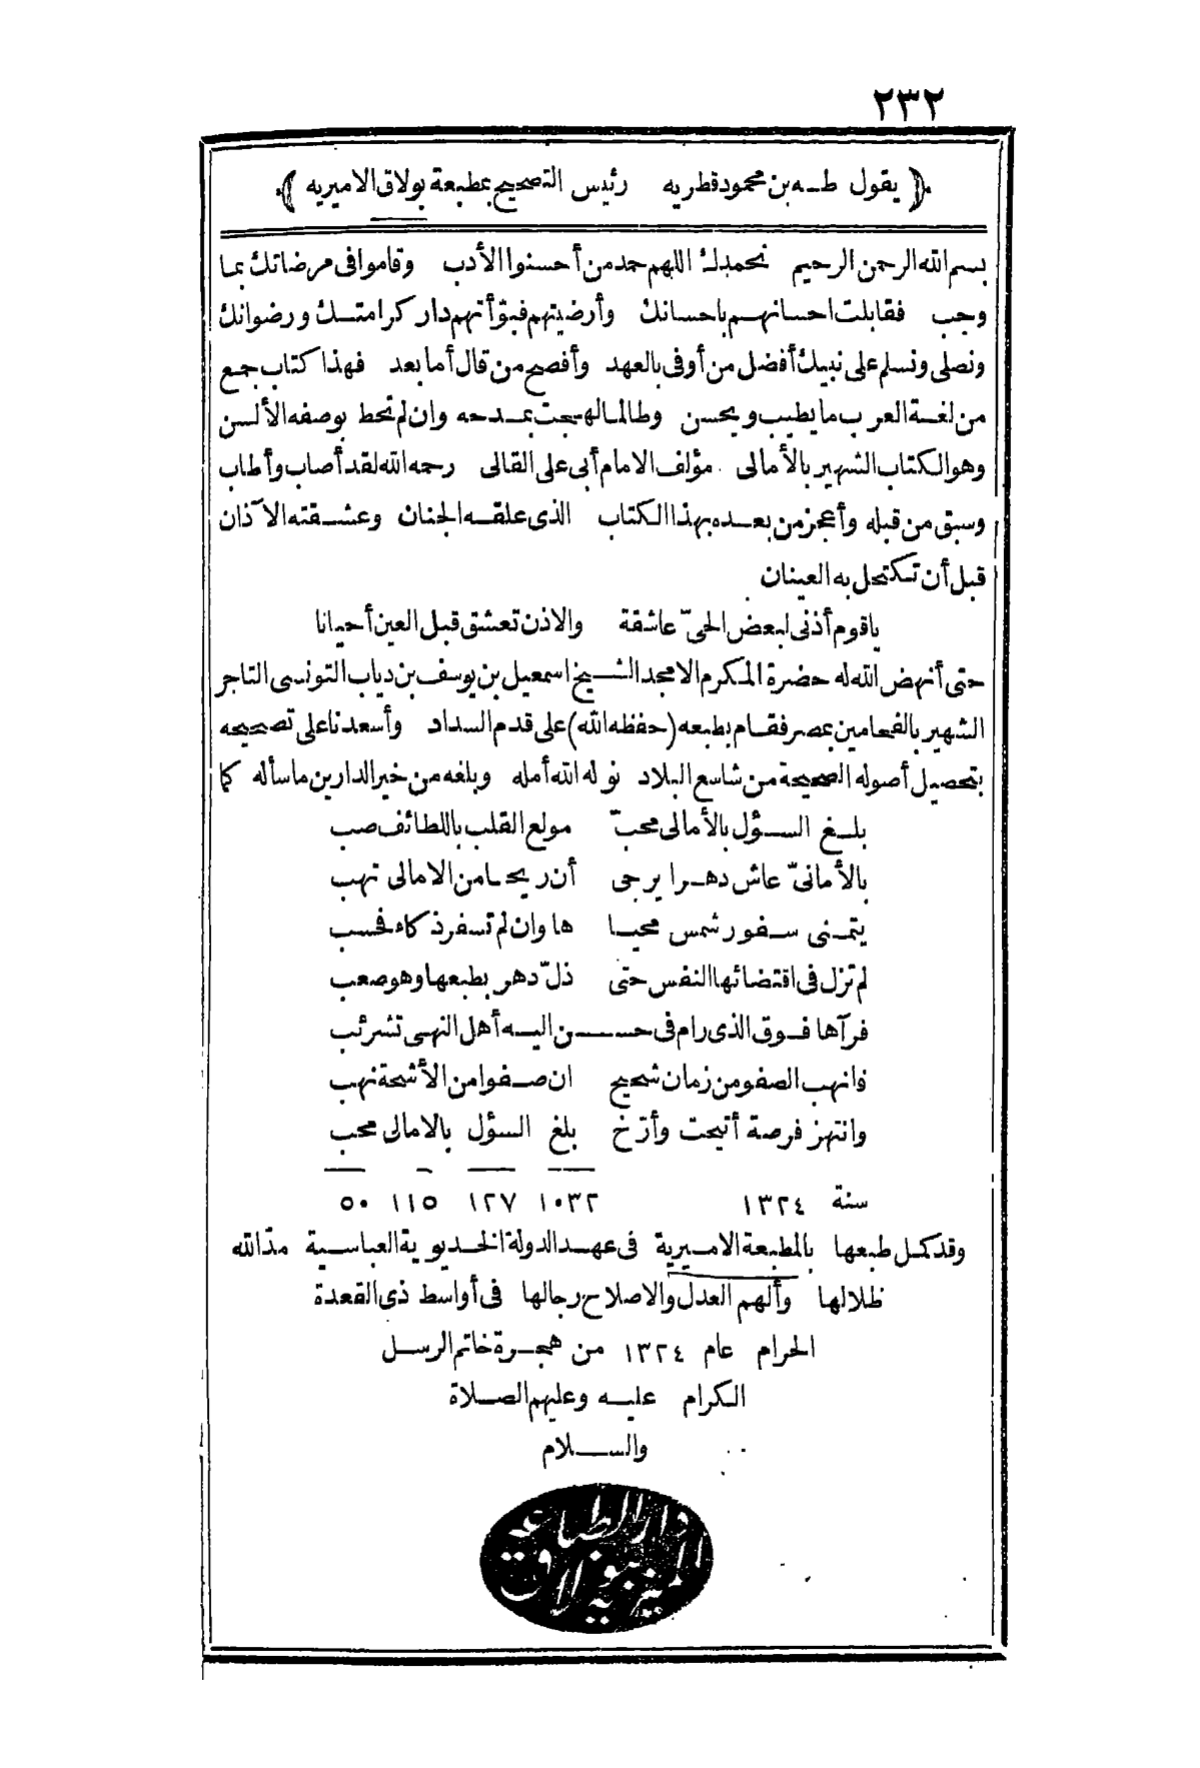 ٢٣٢
﴿ يقول طـه بن محمود قطريه رئيس التصحيح بمطبعة بولاق الاميريه ﴾
بسم الله الرحمن الرحيم نحمدك اللهم حمد من أحسنوا الأدب وقاموا فى مرضاتك بما
وجب فقابلت احسانهم باحسانك وأرضيتهم فبوّأتهم دار كرامتك ورضوانك
ونصلى ونسلم على نبيك أفضل من أوفى بالعهد وأفصح من قال أما بعد فهذا كتاب جمع
من لغة العرب ما يطيب ويحسن وطالما لهجت بمدحه وان لم تحط بوصفه الألسن
وهو الكتاب الشهير بالأمالى مؤلف الامام أبى على القالى رحمه الله لقد أصاب وأطاب
وسبق من قبله وأعجز من بعده بهذا الكتاب الذى علقه الجنان وعشقته الآذان
قبل أن تكتحل به العينان
ياقوم أذنى لبعض الحىّ عاشقة والاذن تعشق قبل العين أحيانا
حتى أنهض الله له حضرة المكرم الامجد الشيخ اسمعيل بن يوسف بن دياب التونسى التاجر
الشهير بالفحامين بمصر فقام بطبعه (حفظه الله) على قدم السداد وأسعدنا على تصحيحه
بتحصيل أصوله الصحيحة من شاسع البلاد نوله الله أمله وبلغه من خير الدارين ما سأله كما
بلغ السؤل بالأمالى محبّ مولع القلب باللطائف صب
بالأمانىّ عاش دهرا يرجى أن ريحا من الامالى تهب
يتمنى سفور شمس محيا ها وان لم تسفر ذكاء فحسب
لم تزل فى اقتضائها النفس حتى ذلّ دهر بطبعها وهو صعب
فرآها فوق الذى رام فى حسـن اليه أهل النهى تشرئب
فانهب الصفو من زمان شحيح ان صفوا من الأشحة نهب
وانتهز فرصة أتيحت وأرّخ بلغ السؤل بالامالى محب
سنة ١٣٢٤ ١٠٣٢ ١٢٧ ١١٥ ٥٠
وقد كمل طبعها بالمطبعة الاميرية فى عهد الدولة الخديوية العباسية مدّ الله
ظلالها وألهم العدل والاصلاح رجالها فى أواسط ذى القعدة
الحرام عام ١٣٢٤ من هجرة خاتم الرسل
الكرام عليه وعليهم الصلاة
والسلام
دار الطباعة
الميرية ببولاق